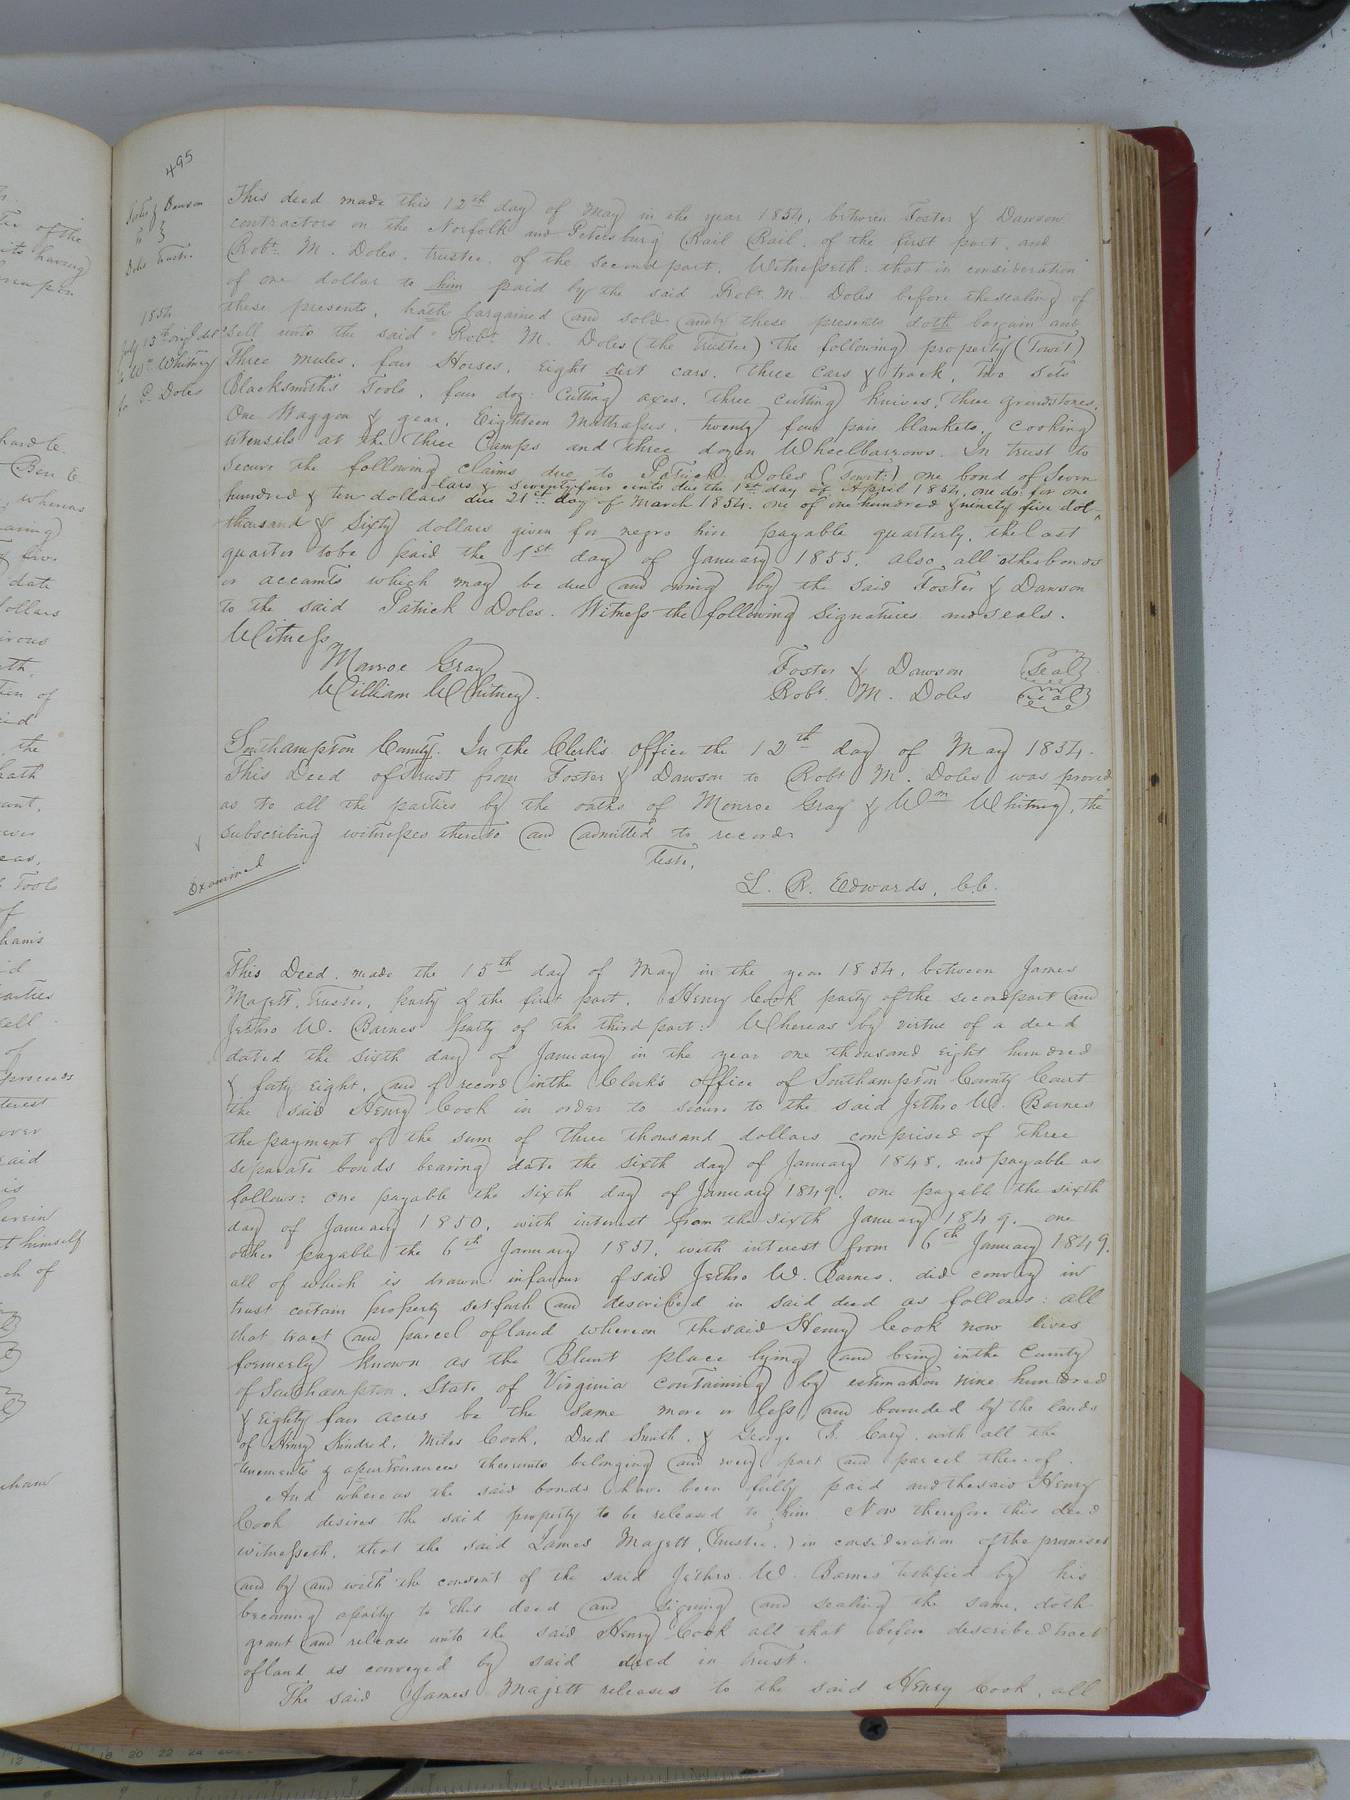 495
Foster & Dawson
" }
Doles Trustee
1854
July 15th orig! del
to Wm Whitney
for P. Doles
This deed made this 12th day of May in the year 1854, between Foster & Dawson
contractors on the Norfolk and Petersburg Rail Rail, of the first part, and
Robt. M. Doles, trustee, of the second part, Witnesseth: that in consideration
of one dollar to him paid by the said Robt. M. Doles before the sealing of
these presents, hath bargained and sold and by these presents doth bargain and
sell unto the said Robt. M. Doles (the Trustee) the following property (Towit)
Three mules, four Horses, Eight dirt cars, three Cars & track, Two Sets
Blacksmith's Tools, four doz: Cutting axes, three cutting knives, three grindstones,
One Waggon & gear, Eighteen Mattrasses, twenty four pair blankets, cooking
utensils at the three Camps and three dozen Wheelbarrows. In trust to
secure the following claims due to Patrick Doles (Towit:) one bond of Seven
lars & seventy four cents due the 1st day of April 1854, one do. for one
hundred & ten dollars due 21st day of March 1854. one of one hundred & ninety five dol-
thousand & Sixty dollars given for negro hire payable quarterly, the last
quarter to be paid the 1st day of January 1855, also, all other bonds
or accounts which may be due and owing by the said Foster & Dawson
to the said Patrick Doles. Witness the following Signatures and seals.
Witness
Monroe Gray Foster & Dawson Seal
William Whitney. Robt. M. Doles Seal
Southampton County. In the Clerk's Office the 12th day of May 1854.
This Deed of trust from Foster & Dawson to Robt M. Doles was proved
as to all the parties by the oaths of Monroe Gray & Wm Whitney, the
subscribing witnesses thereto and admitted to record
Teste,
Examined
L. R. Edwards, C.C.
This Deed, made the 15th day of May in the year 1854, between James
Majett, Trustee, party of the first part, Henry Cook party of the second part and
Jethro W. Barnes party of the third part: Whereas by virtue of a deed
dated the sixth day of January in the year one thousand eight hundred
& forty eight, and of record in the Clerk's Office of Southampton County Court
the said Henry Cook in order to secure to the said Jethro W. Barnes
the payment of the sum of three thousand dollars comprised of three
separate bonds bearing date the sixth day of January 1848, and payable as
follows: one payable the sixth day of January 1849. one payable the sixth
day of January 1850, with interest from the sixth January 1849. one
other payable the 6th January 1851, with interest from 6th January 1849.
all of which is drawn in favour of said Jethro W. Barnes, did convey in
trust certain property set forth and described in said deed as follows: all
that tract and parcel of land whereon the said Henry Cook now lives
formerly known as the Blunt place lying and being in the County
of Southampton, State of Virginia containing by estimation nine hundred
& Eighty four acres be the same more or less and bounded by the lands
of Henry Kindred, Miles Cook, Dred Smith, & George Cary with all the
tenements & apurtenances thereunto belonging and every part and parcel thereof.
And whereas the said bonds have been fully paid and the said Henry
Cook desires the said property to be released to him. Now therefore this deed
witnesseth, that the said James Majett, (Trustee,) in consideration of the premises
and by and with the consent of the said Jethro W. Barnes testified by his
becoming a party to this deed and signing and sealing the same, doth
grant and release unto the said Henry Cook all that before described tract
of land as conveyed by said deed in trust.
The said James Majett releases to the said Henry Cook, all